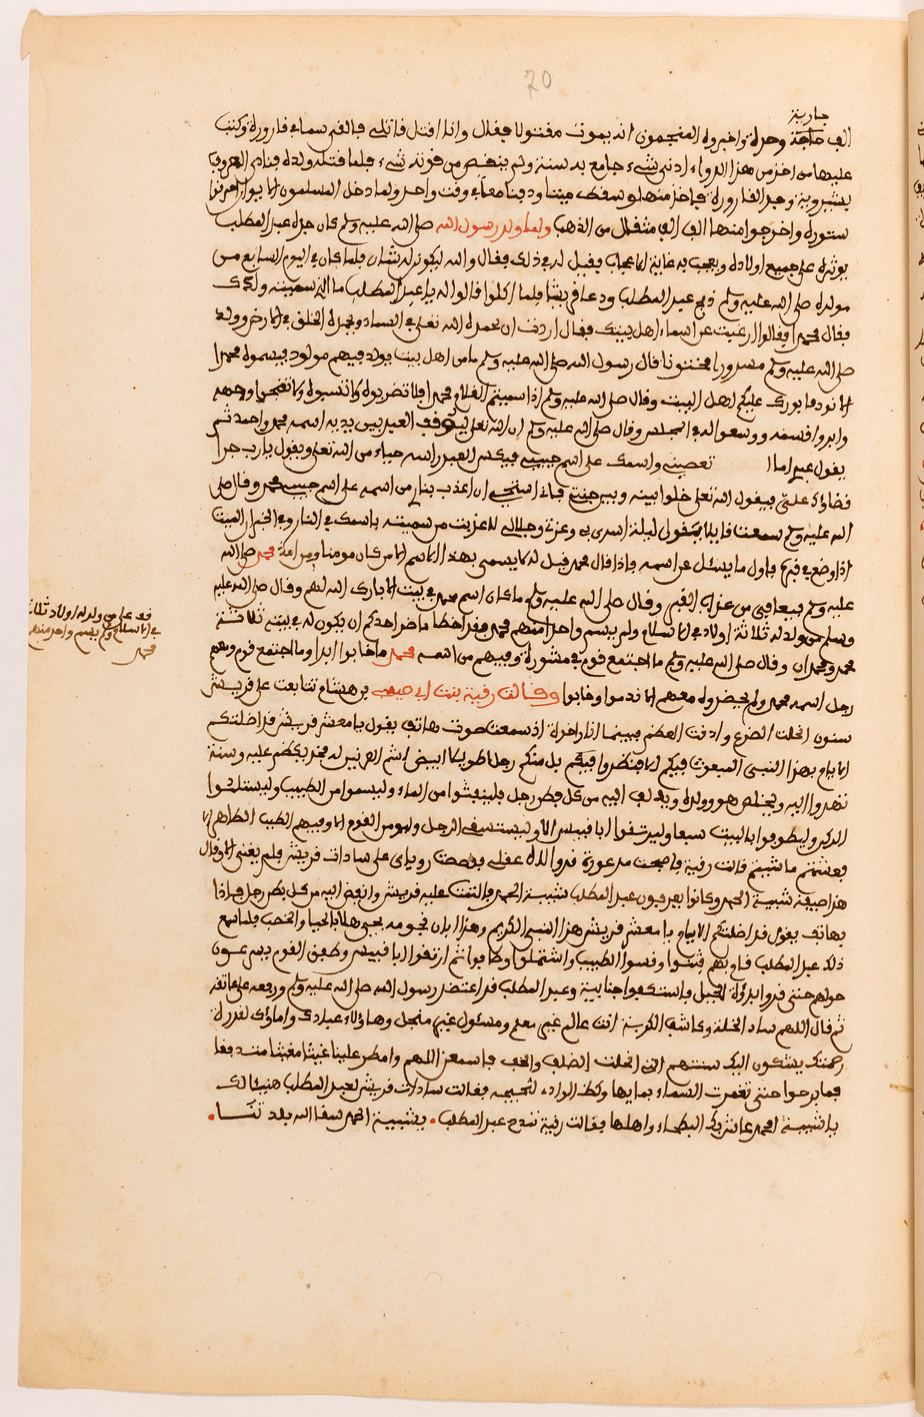 70
جارية
الف وحده واخبروه المنجمون انه يموت مقتولا فقال وانا اقتل قاتلي فالقى سما في قارورة وكتب
عليها من اخذ من هذا الدواء ادنى شيء جامع به سنة ولم ينقص من قوته شيء فلما قتله ولده
بشيرويه وجد القارورة فاخذ منها وسقط ميتا ودفنا معا في وقت واحد ولما دخل المسلمون
ستوره واخرجوا منها الف الف مثقال من الذهب ولما ولد رسول الله صلى الله عليه وسلم كان جده عبد المطلب
يوثره على جميع اولاده ويعجب به غاية الاعجاب فقيل له في ذلك فقال والله ليكونن له شان فلما كان في اليوم السابع من
مولده صلى الله عليه وسلم ذبح عبد المطلب ودعا قريشا فلما اكلوا قالوا له يا عبد المطلب ما الذي سميته ولدك
فقال محمدا فقالوا ارغبت عن اسماء اهل بيتك فقال اردت ان يحمده الله تعلى في السماء ويحمده الخلق في الارض وولد
صلى الله عليه وسلم مسرورا مختونا قال رسول الله صلى الله عليه وسلم ما من اهل بيت يولد فيهم مولود فيسموه محمدا
الا نودوا بورك عليكم اهل البيت وقال صلى الله عليه وسلم اذا سميتم الغلام محمدا فلا تضربوه ولا تسبوه ولا تقبحوا وجهه
وابروا قسمه ووسعوا له في المجلس وقال صلى الله عليه وسلم ان الله تعلى ليوقف العبد بين يديه اسمه محمد واحمد ثم
يقول عبدي اما تعصيني واسمك على اسم حبيبي فينكس العبد راسه حياء من الله تعلى ويقول يا رب جرا
قضاؤك علي فيقول الله تعلى خلوا بينه وبين جنتي فاني استحيي ان اعذب بنار من اسمه على اسم حبيبي محمد وقال صلى
الله عليه وسلم سمعت قايلا يقول ليلة اسري بي وعزتي وجلالي لا عذبت من سميته باسمك في النار وفي الخبر ان الميت
اذا وضع في قبره فاول ما يسئل عن اسمه فاذا قال محمد قيل له لا يسمى بهذا الاسم الا من كان مومنا ومن امة محمد صلى الله
عليه وسلم فيعافى من عذاب القبر وقال صلى الله عليه وسلم ما كان اسم محمد في بيت الا بارك الله لهم وقال صلى الله عليه
وسلم من ولد له ثلاثة اولاد في الاسلام ولم يسم واحدا منهم محمد فقد اخطا ما ضر احدكم ان يكون له في بيته ثلاثة
محمد ومحمدان وقال صلى الله عليه وسلم ما اجتمع قوم في مشورة وفيهم من اسمه محمد ما خابوا ابدا وما اجتمع قوم وفيهم
رجل اسمه محمد ولم يحضروه معهم الا ندموا وخابوا وقالت رقيقة بنت ابي صيفي بن هشام تتابعت على قريش
سنون انحلت الضرع وادقت العظم فبينما انا راقدة اذ سمعت صوت هاتف يقول يا معشر قريش قد اضلتكم
الايام بهذا النبي المبعوث فيكم الا فانظروا فيكم بل منكم رجلا طويلا ابيض اشم العرنين له فخر يكظم عليه وسنة
تهدوا اليه وليخلص هو وولده ويدلف اليه من كل قطر رجل فليشنوا من الماء وليمسوا من الطيب وليستلموا
الركن وليطوفوا بالبيت سبعا وليرتقوا ابا قبيس الا وليستسق الرجل وليومن القوم الا وفيهم الطيب الطاهر الا
فعشتم ما شيتم قالت رقيقة فاصبحت مذعورة قد وله عقلي فقصصت روياي على سادات قريش فلم يبق الا وقال
هذا صيفه شيبة الحمد وكانوا يعرفون عبد المطلب شيبة الحمد فالتفت عليه قريش وانقض اليه من كل بطن رجل فاذا
بهاتف يقول قد اضلتكم الايام يا معشر قريش هذا النبي الكريم وهذا ابان نجومه بحي هلا بالحيا والخصب فلما سمع
ذلك عبد المطلب قاموا فشنوا ومسوا الطيب واشتملوا وطافوا ثم ارتقوا ابا قبيس وطفق القوم يسرعون
حولهم حتى قروا بذروة الجبل فاستكفوا جنابيه وعبد المطلب قد اعتضد رسول الله صلى الله عليه وسلم ورفعه على عاتقه
ثم قال اللهم ساد الخلة وكاشف الكربة انت عالم غير معلم ومسئول غير منجل وهاؤلاء عبادك واماؤك بغدرة
رحمتك يشكون اليك سنتهم التي انحلت الظلف والخف فاسمعن اللهم وامطر علينا غيثا مغيثا مندفقا
فما برحوا حتى تفجرت السماء بمايها وكظ الوادي لثجيجه فقالت سادات قريش لعبد المطلب هنيئا لك
يا شيبة الحمد عاش بك البطحاء واهلها فقالت رقيقة تمدح عبد المطلب بشيبة الحمد سقا الله بلدتنا
قف على من ولد له اولاد ثلاث
في الاسلام ولم يسم واحد منهم
محمد